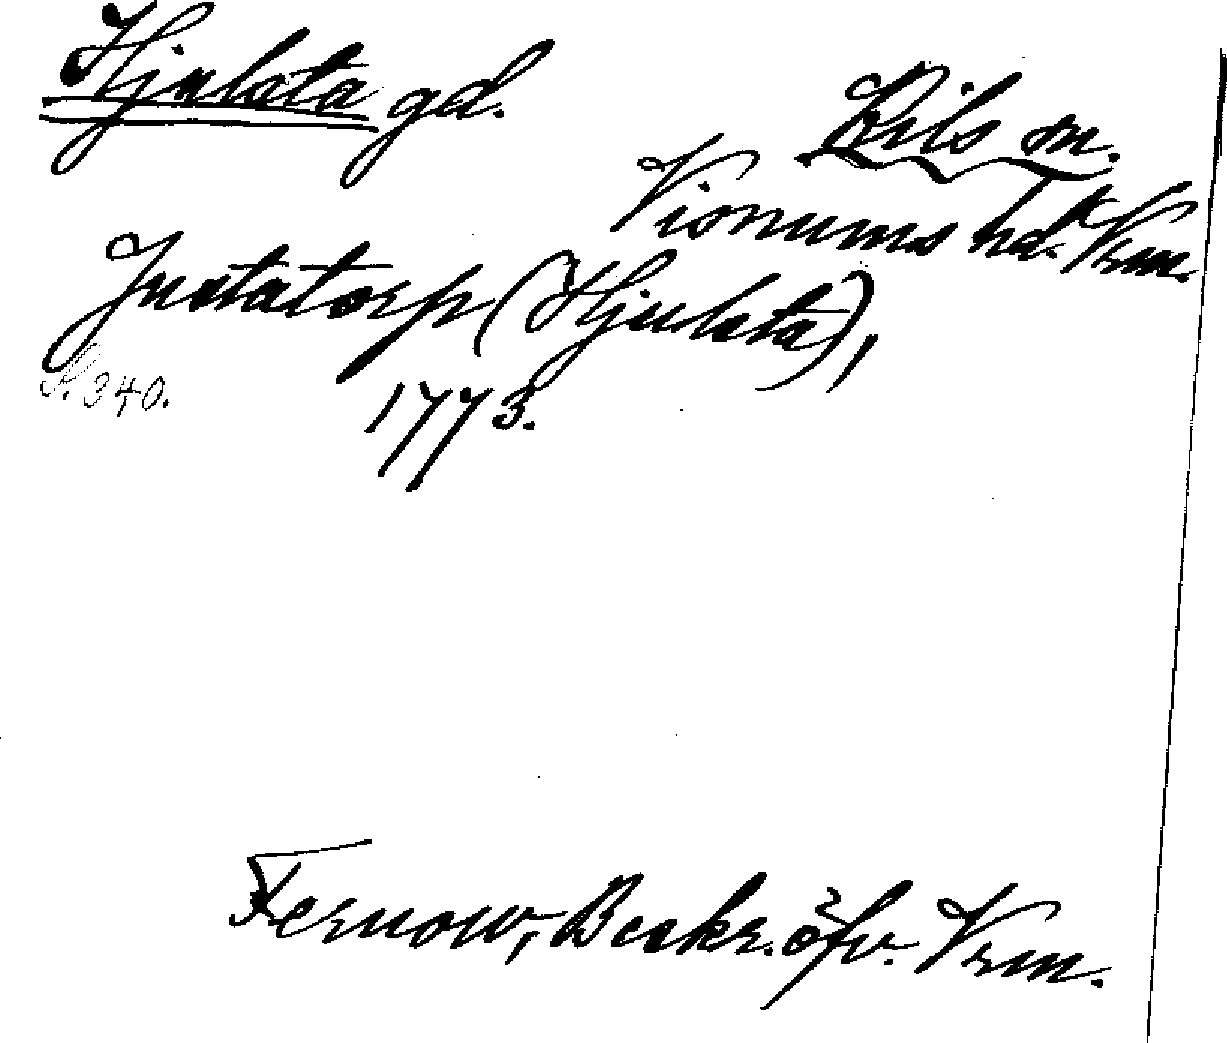 Hjulsta gd.
Kils sn.
Visnums hd. Vrm.
Justatorp (Hjulsta),
S. 340.
1773.
Fernow, Beskr. öfv. Vrm.